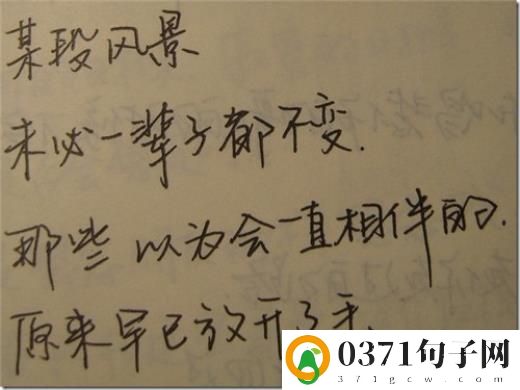 某段风景
未必一辈子都不变.
那些以为会一直相伴的.
原来早已放开了手.
0371句子网
371gcw.com